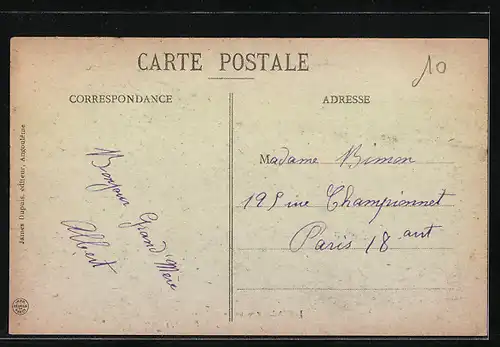 CARTE POSTALE
10
CORRESPONDANCE
ADRESSE
James Dupuis, éditeur, Angoulême
Bonjour Grand Mère
Albert
Madame Bimon
195 rue Championnet
Paris 18 ant